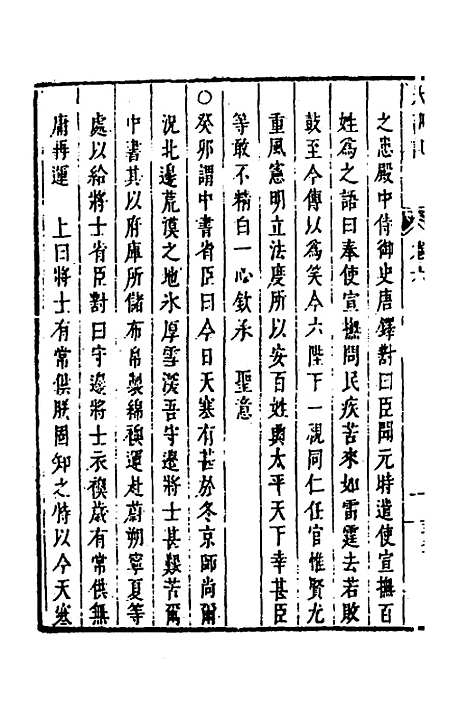 之患殿中侍御史唐鐸對曰臣聞元時遣使宣撫百
姓為之語曰奉使宣撫問民疾苦來如雷霆去若敗
鼓至今傳以為笑今六陛下一視同仁任官惟賢尤
重風憲明立法度所以安百姓興太平天下幸甚臣
等敢不精白一心欽承　聖意
○癸卯謂中書省臣曰今日天寒有甚於冬京師尚爾
況北邊荒漠之地氷厚雪深吾守邊將士甚艱苦爾
中書其以府庫所儲布帛製綿襖運赴蔚朔寧夏等
處以給將士省臣對曰守邊將士衣襖歲有常供無
庸再運　上曰將士有常供朕固知之特以今天寒
卷六